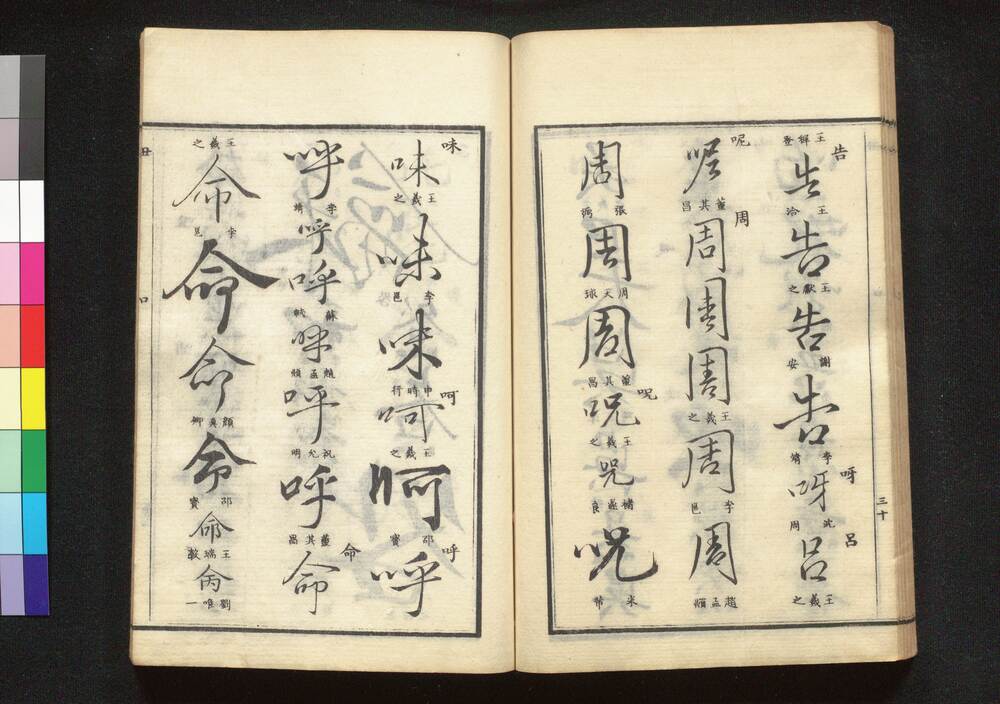 告
告
王穉登
告
王洽
告
王獻之
告
謝安
呀
呀
李靖
呂
呂
沈周
王羲之
三十
呢
呢
董其昌
周
周
周
周
王羲之
周
李邕
周
趙孟頫
周
張弼
周
周天球
周
董其昌
呪
呪
王羲之
呪
褚遂良
呪
米芾
味
味
王羲之
味
李邕
味
申時行
呵
呵
王羲之
呵
邵寶
呼
呼
呼
李靖
呼
呼
蘇軾
呼
趙孟頫
呼
祝允明
呼
董其昌
命
命
王羲之
命
李邕
命
命
顏真卿
命
邵寶
命
王端淑
命
劉唯一
丑
口